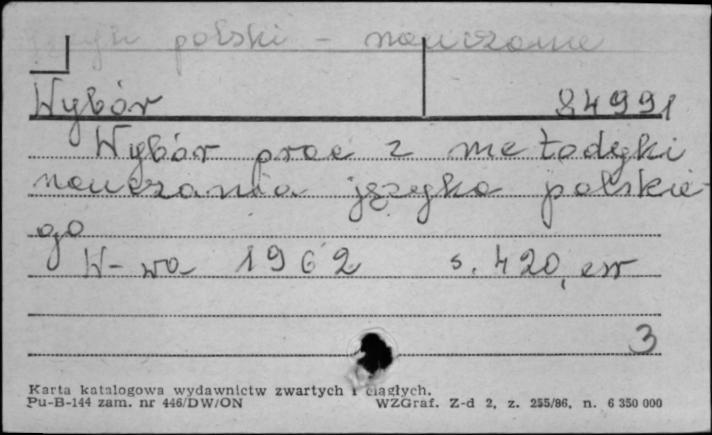 język polski - nauczanie
Wybór 84991
Wybór prac z metodyki
nauczania języka polskie-
go
W-wa 1962 s. 420,
3
Karta katalogowa wydawnictw zwartych i ciągłych.
Pu-B-144 zam. nr 446/DW/ON WZGraf. Z-d 2, z. 255/86, n. 6 350 000